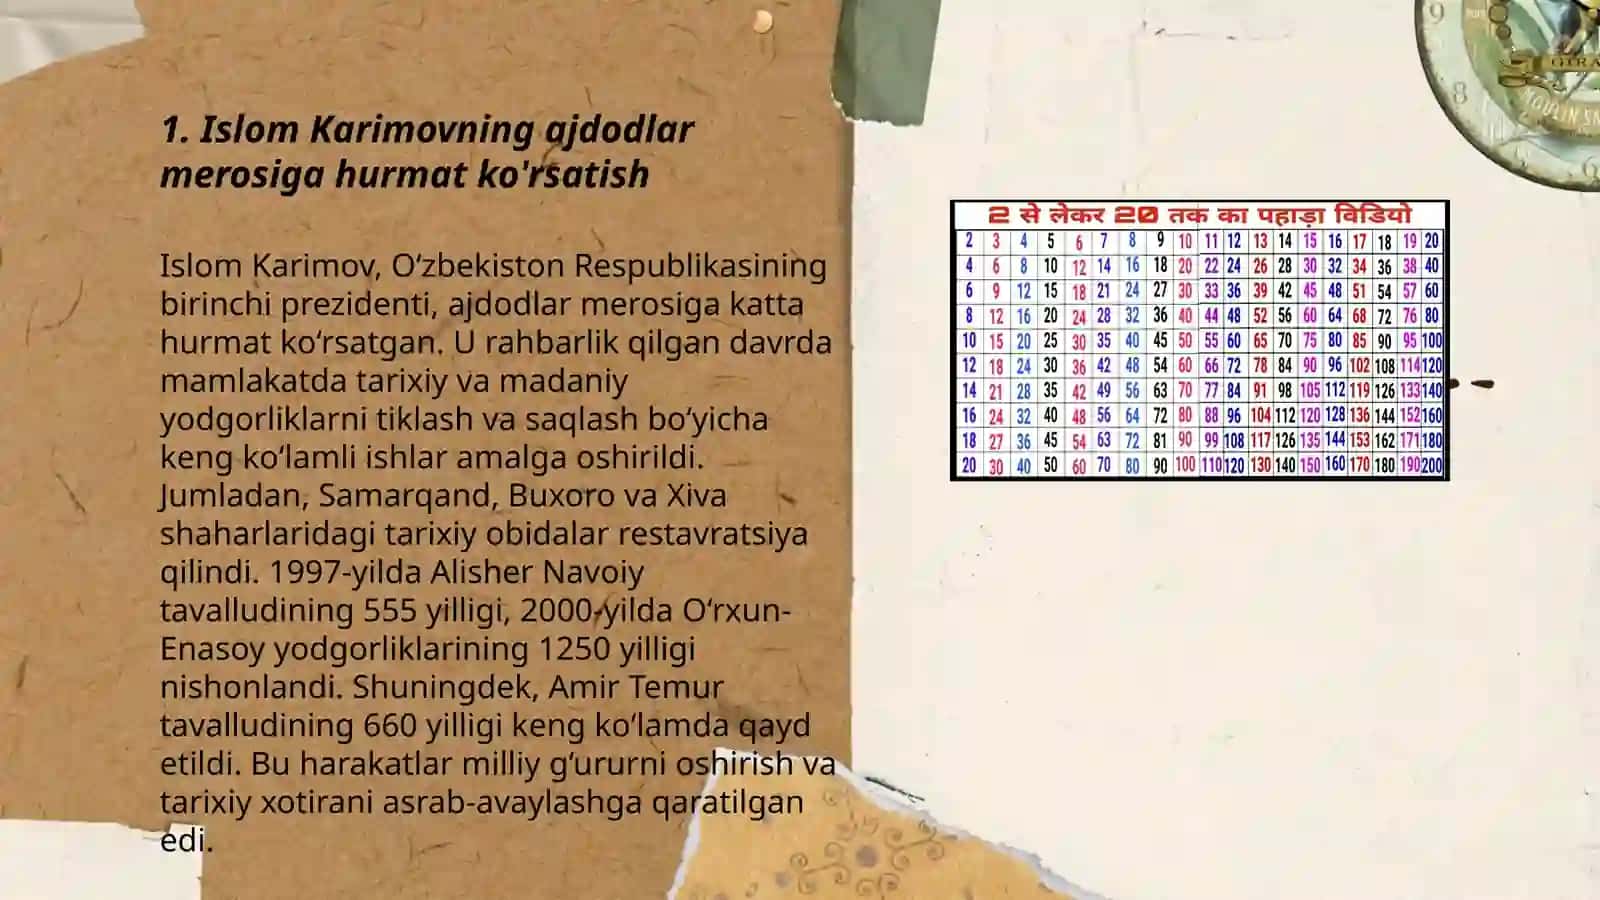 1. Islom Karimovning ajdodlar
merosiga hurmat ko'rsatish
Islom Karimov, O‘zbekiston Respublikasining
birinchi prezidenti, ajdodlar merosiga katta
hurmat ko‘rsatgan. U rahbarlik qilgan davrda
mamlakatda tarixiy va madaniy
yodgorliklarni tiklash va saqlash bo‘yicha
keng ko‘lamli ishlar amalga oshirildi.
Jumladan, Samarqand, Buxoro va Xiva
shaharlaridagi tarixiy obidalar restavratsiya
qilindi. 1997-yilda Alisher Navoiy
tavalludining 555 yilligi, 2000-yilda O‘rxun-
Enasoy yodgorliklarining 1250 yilligi
nishonlandi. Shuningdek, Amir Temur
tavalludining 660 yilligi keng ko‘lamda qayd
etildi. Bu harakatlar milliy g‘ururni oshirish va
tarixiy xotirani asrab-avaylashga qaratilgan
edi.
2 से लेकर 20 तक का पहाड़ा विडियो
2 3 4 5 6 7 8 9 10 11 12 13 14 15 16 17 18 19 20
4 6 8 10 12 14 16 18 20 22 24 26 28 30 32 34 36 38 40
6 9 12 15 18 21 24 27 30 33 36 39 42 45 48 51 54 57 60
8 12 16 20 24 28 32 36 40 44 48 52 56 60 64 68 72 76 80
10 15 20 25 30 35 40 45 50 55 60 65 70 75 80 85 90 95 100
12 18 24 30 36 42 48 54 60 66 72 78 84 90 96 102 108 114 120
14 21 28 35 42 49 56 63 70 77 84 91 98 105 112 119 126 133 140
16 24 32 40 48 56 64 72 80 88 96 104 112 120 128 136 144 152 160
18 27 36 45 54 63 72 81 90 99 108 117 126 135 144 153 162 171 180
20 30 40 50 60 70 80 90 100 110 120 130 140 150 160 170 180 190 200
9
8